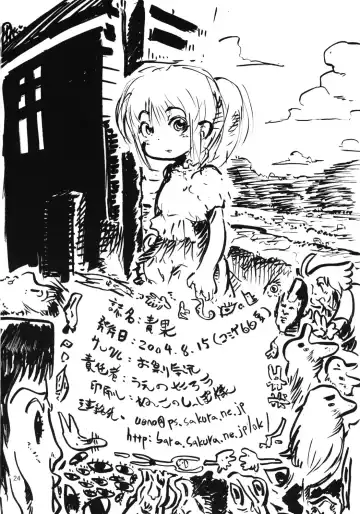 誌名:青果
発行日:2004.8.15(コミケ66)
サークル:
責任者:うえのやろう
印刷:ねこのしっぽ様
連絡先:ueno@ps.sakura.ne.jp
http:bara.sakura.ne.jp/ok/
24